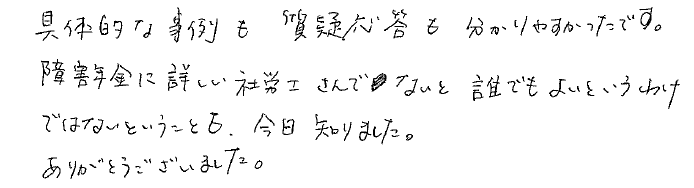 具体的な事例も質疑応答も分かりやすかったです。
障害年金に詳しい社労士さんでないと誰でもよいというわけ
ではないということも、今日知りました。
ありがとうございました。